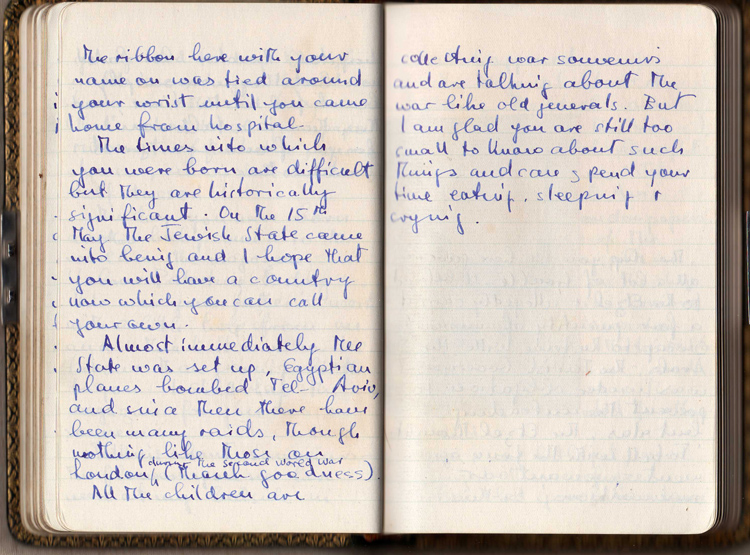 The ribbon here with your
name on was tied around
your wrist until you came
home from hospital.
The times into which
you were born are difficult
but they are historically
significant. On the 15th
May the Jewish State came
into being and I hope that
you will have a country
now which you can call
your own.
Almost immediately the
State was set up, Egyptian
planes bombed Tel-Aviv,
and since then there have
been many raids, though
nothing like those on
during the second world war
London, (thank goodness).
All the children are
collecting war souvenirs
and are talking about the
war like old generals. But
I am glad you are still too
small to know about such
things and can spend your
time eating, sleeping &
crying.